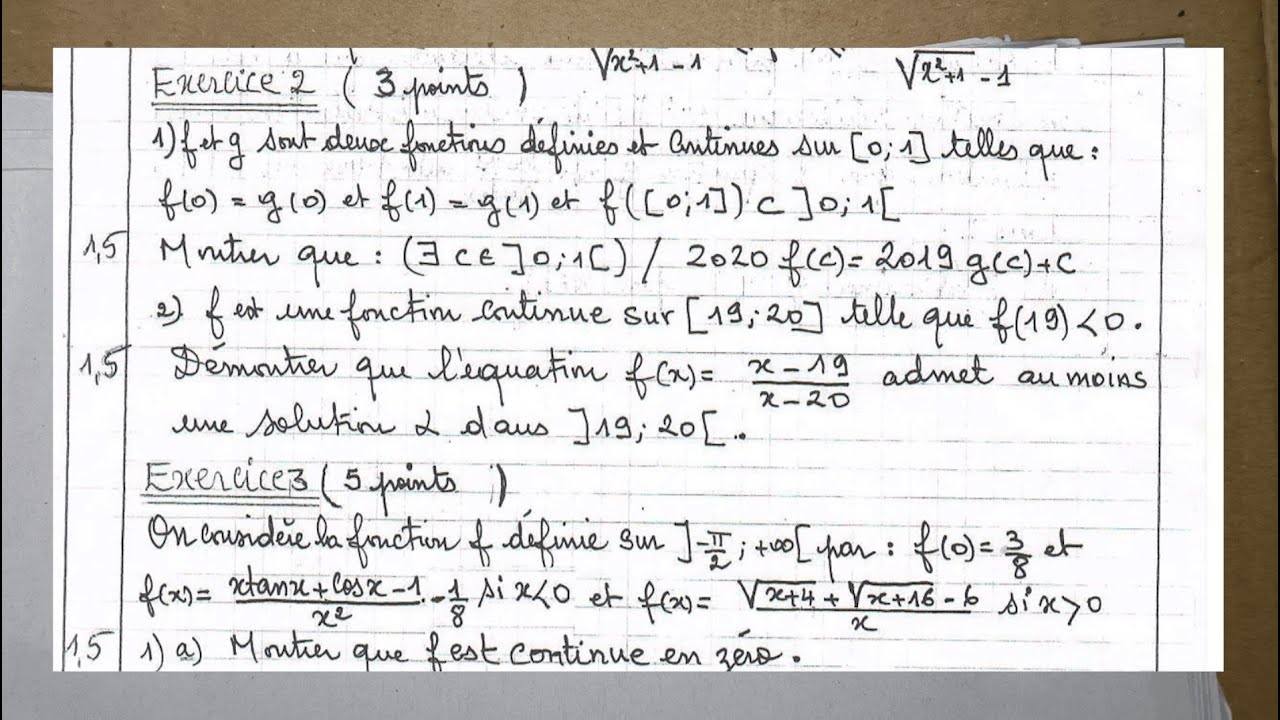 √x²+1 - 1 √x²+1 - 1
Exercice 2 ( 3 points )
1) f et g sont deux fonctions définies et continues sur [0;1] telles que :
f(0) = g(0) et f(1) = g(1) et f([0;1]) ⊂ ]0;1[
1,5 Montrer que : (∃ c ∈ ]0;1[) / 2020 f(c) = 2019 g(c)+c
2) f est une fonction continue sur [19;20] telle que f(19) < 0.
1,5 Démontrer que l'équation f(x) = (x-19)/(x-20) admet au moins
une solution α dans ]19;20[ ..
Exercice 3 ( 5 points )
On considère la fonction f définie sur ]-π/2 ; +∞[ par : f(0) = 3/8 et
f(x) = (xtanx + cosx - 1)/x² - 1/8 si x<0 et f(x) = (√x+4 + √x+16 - 6)/x si x>0
1,5 1) a) Montrer que f est continue en zéro .